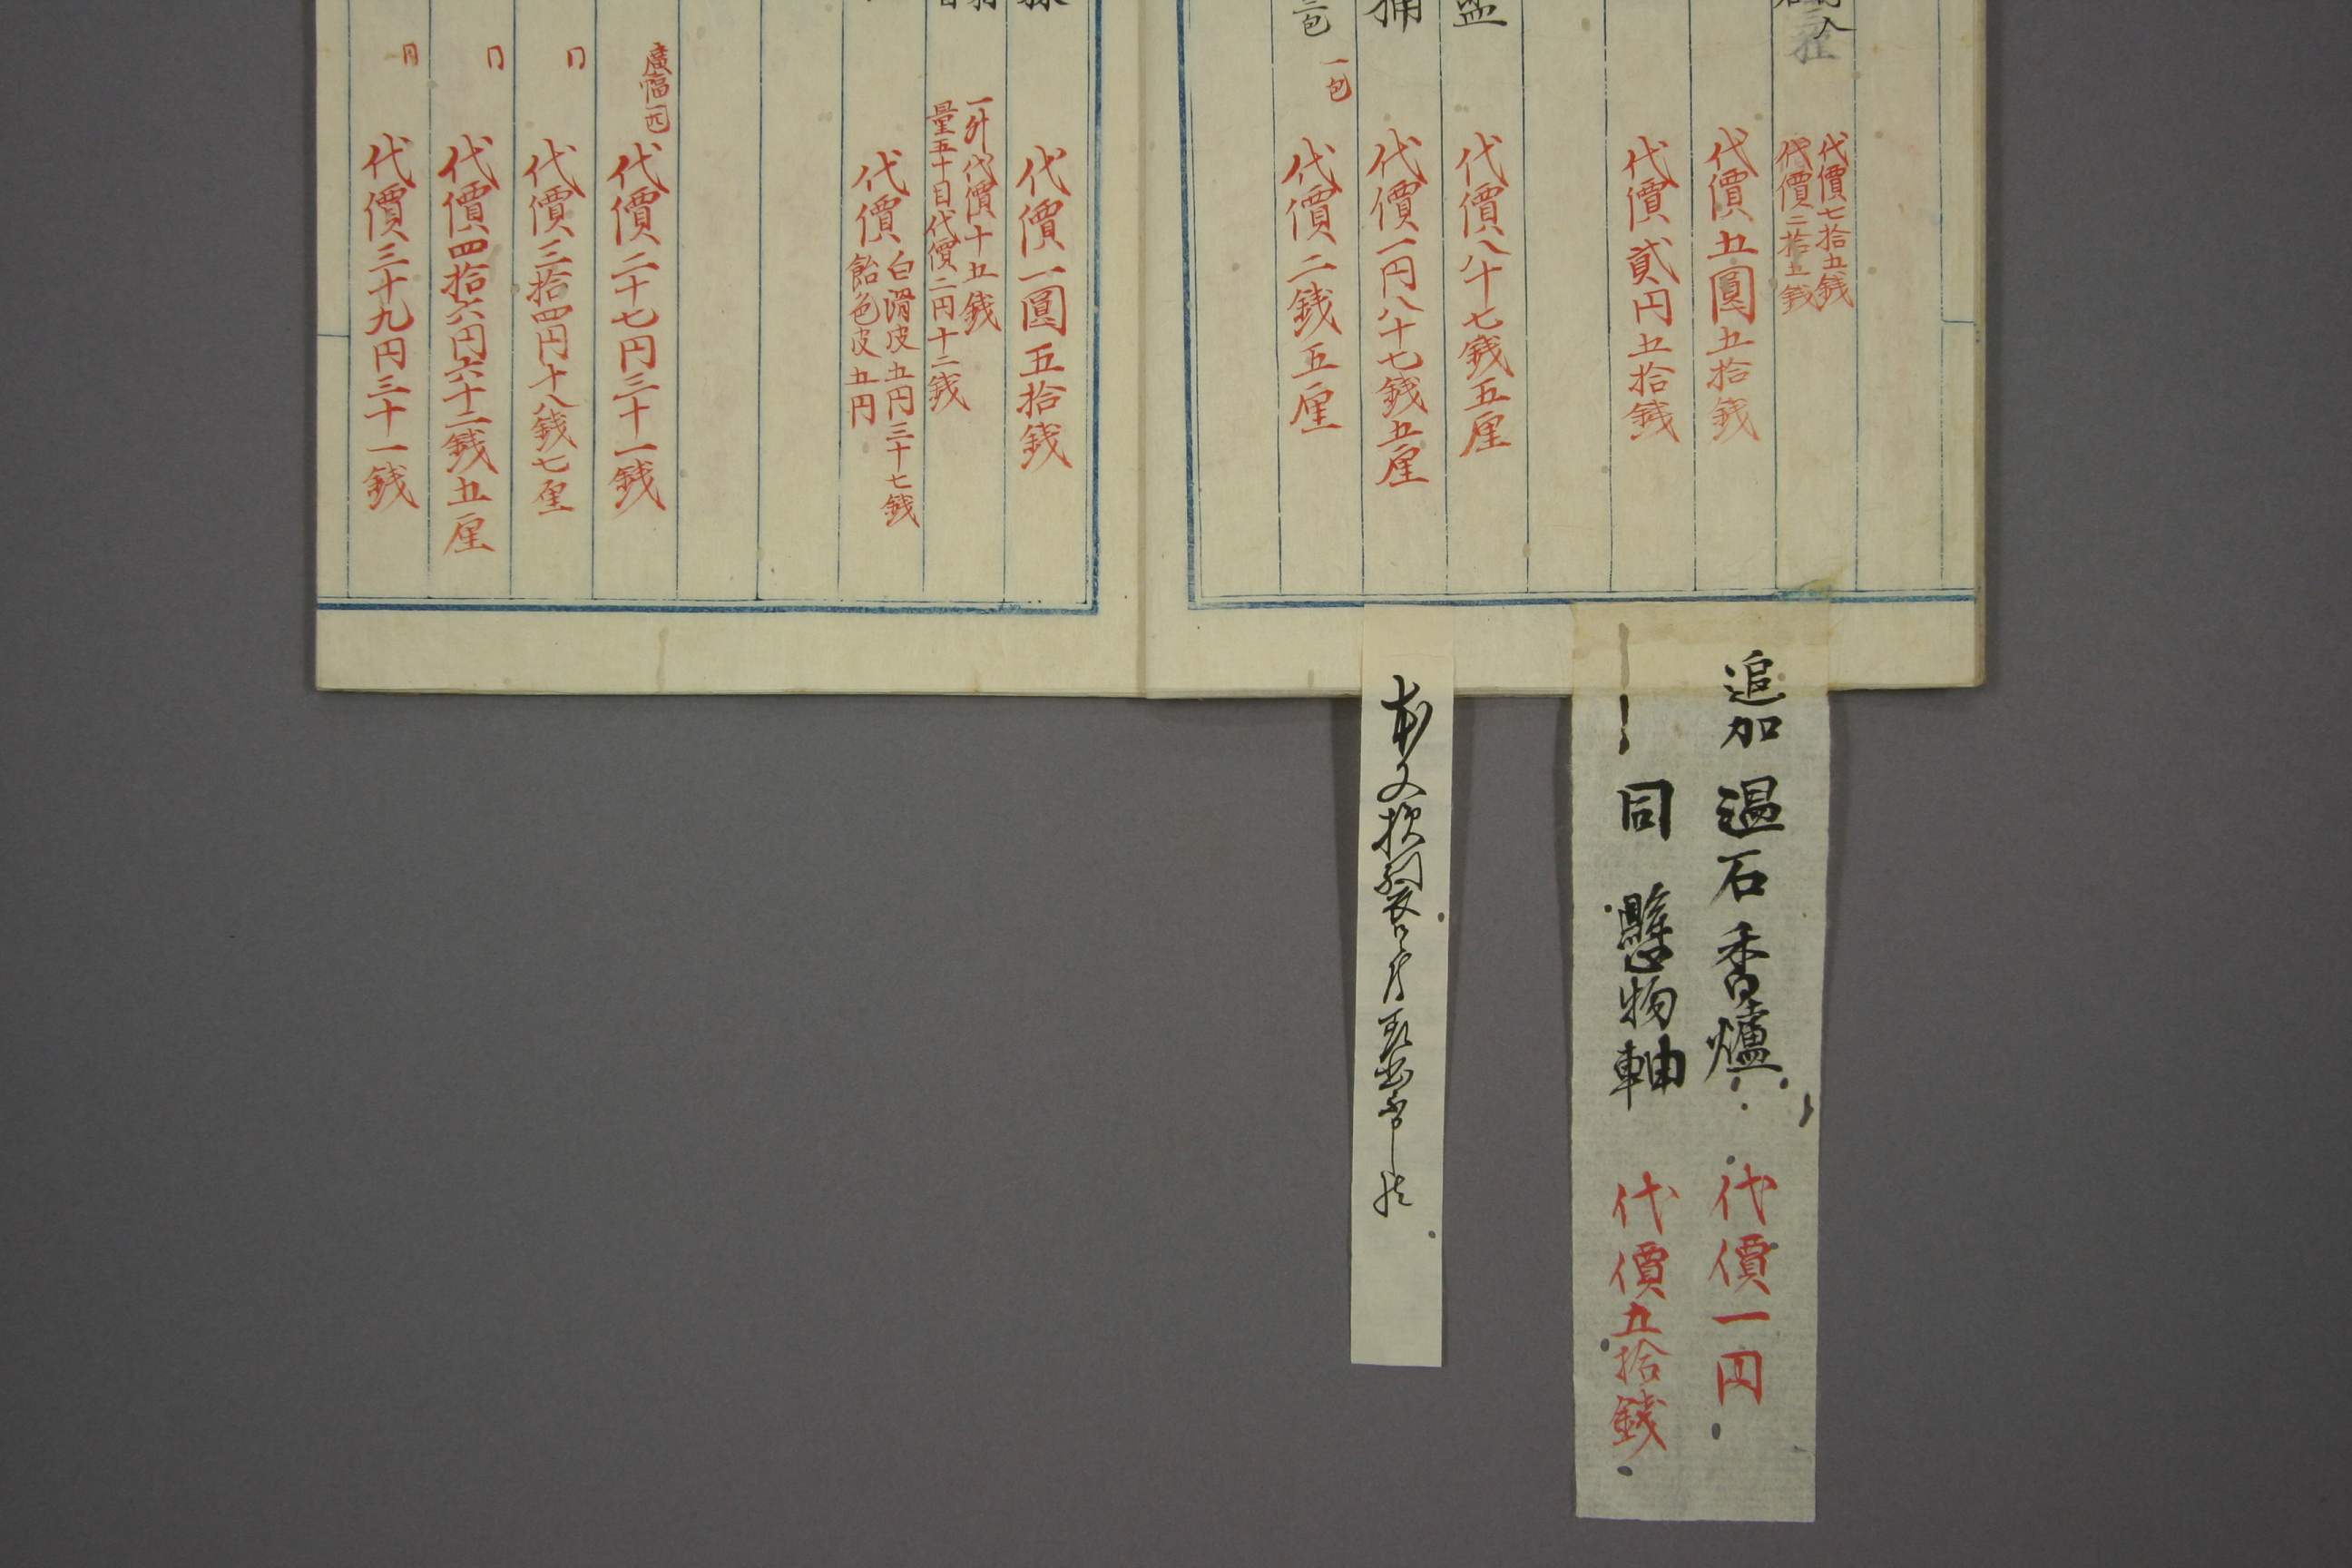 代價七拾五銭
代價二拾五銭
代價五圓五拾銭
代價貳円五拾銭
代價八十七銭五厘
代價一円八十七銭五厘
一包 代價二銭五厘
代價一圓五拾銭
一升代價十五銭
量五十目代價二円十二銭
代價 白滑皮五円三十七銭
飴色皮五円
廣幅一匹 代價二十七円三十一銭
代價三拾四円十八銭七厘
代價四拾六円六十二銭五厘
代價三十九円三十一銭
追加 温石香爐 代價一円
一 同 懸物軸 代價五拾銭